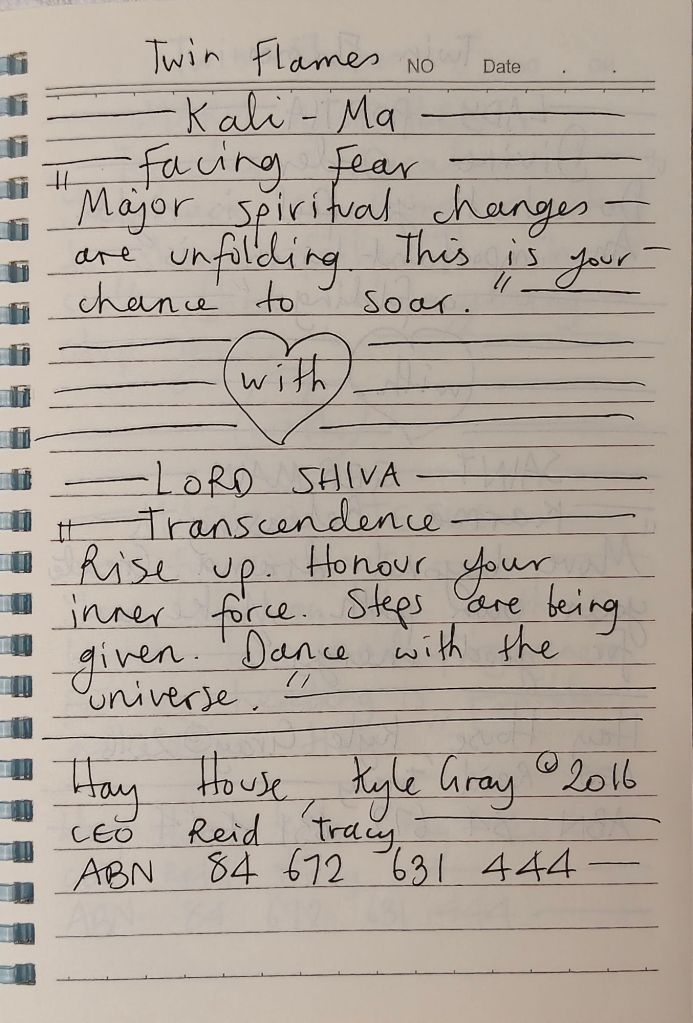 Twin Flames NO Date . .
Kali - Ma
Facing Fear
"Major spiritual changes
are unfolding. This is your
chance to soar."
with
LORD SHIVA
Transcendence
"Rise up. Honour your
inner force. Steps are being
given. Dance with the
universe."
Hay House, Kyle Gray © 2016
CEO Reid Tracy
ABN 84 672 631 444